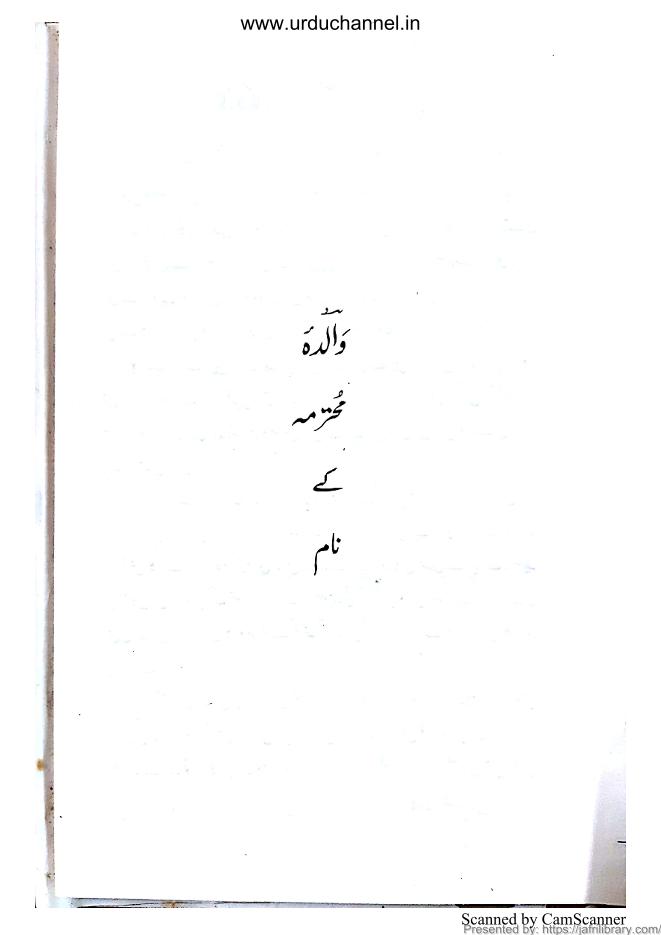 www.urduchannel.in
والدۂ
محترمہ
کے
نام
Scanned by CamScanner
Presented by: https://jafrilibrary.com/